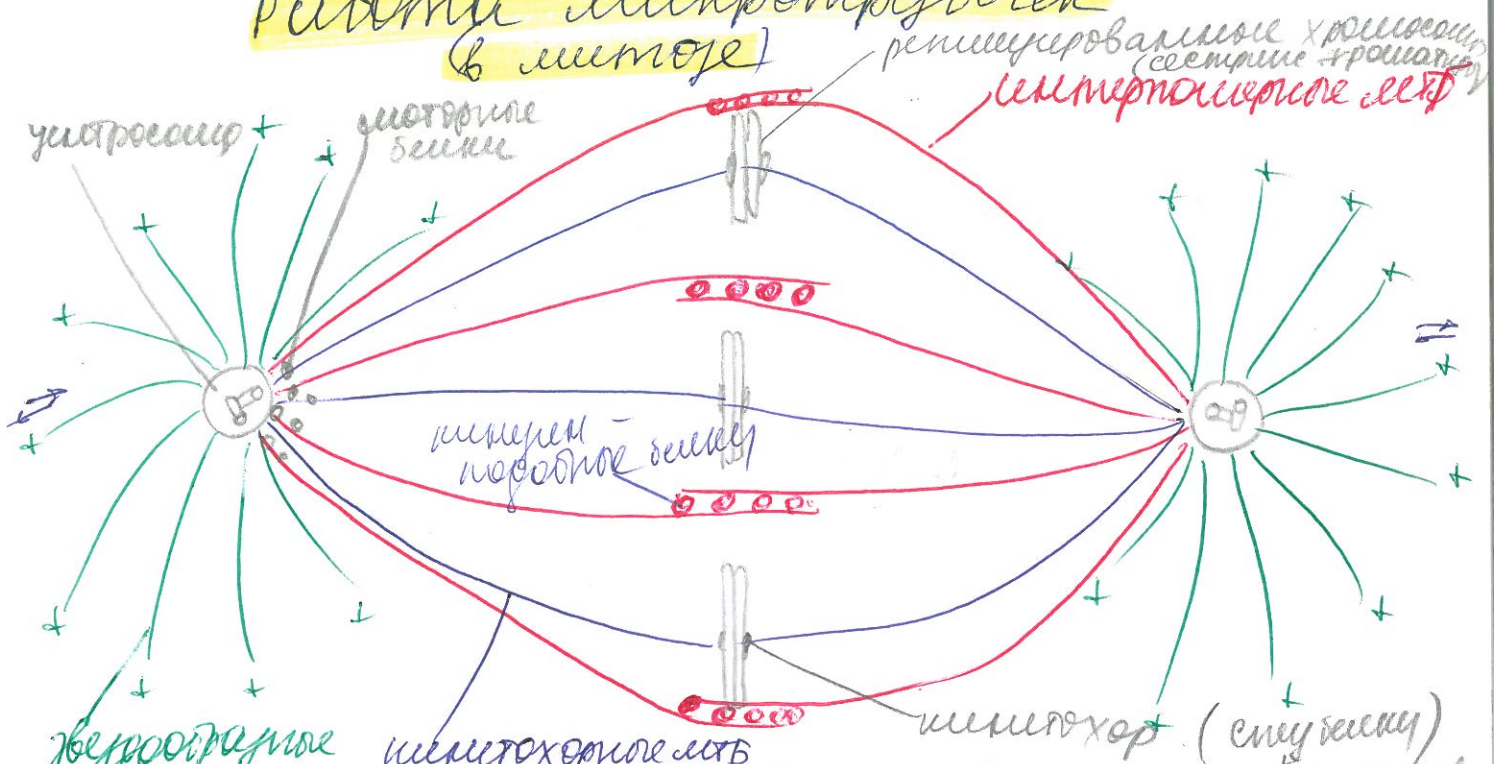 Работа микротрубочек
(в митозе)
реплицированные хромосомы
(сестрин. хроматиды)
интерполярные МТБ
центросома
моторные
белки
кинезин -
подобные белки
звездообразные
кинетохорные МТБ
кинетохор (спец белки)